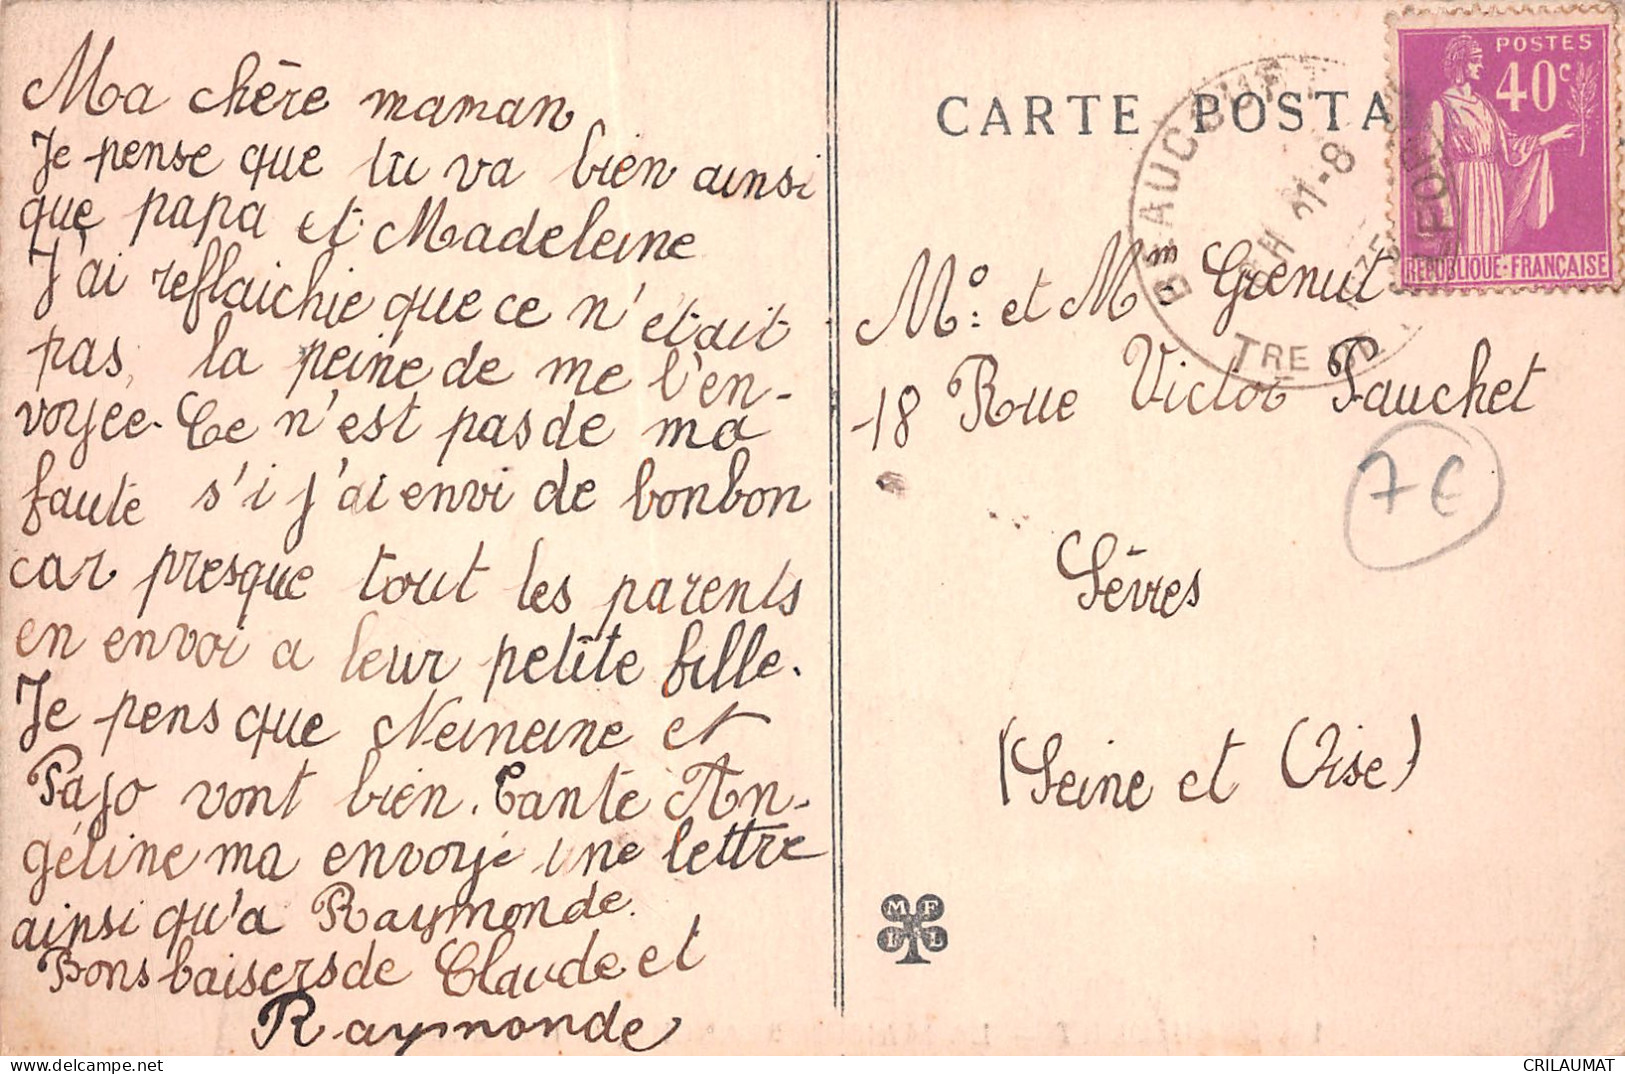 Ma chère maman
Je pense que tu va bien ainsi
que papa et Madeleine
J'ai reflaichie que ce n'était
pas la peine de me l'en-
voyee. Ce n'est pas de ma
faute s'i j'ai envi de bonbon
car presque tout les parents
en envoi a leur petite fille.
Je pens que Neineine et
Pajo vont bien. Tante An-
géline ma envoyé une lettre
ainsi qu'a Raymonde.
Bons baisers de Claude et
Raymonde
CARTE POSTA
POSTES
40c
REPUBLIQUE·FRANÇAISE
21-8
TRE
Mº: et Mm Grenut
18 Rue Victor Pauchet
7€
Sèvres
(Seine et Oise)
M F
L
delcampe.net
CRILAUMAT